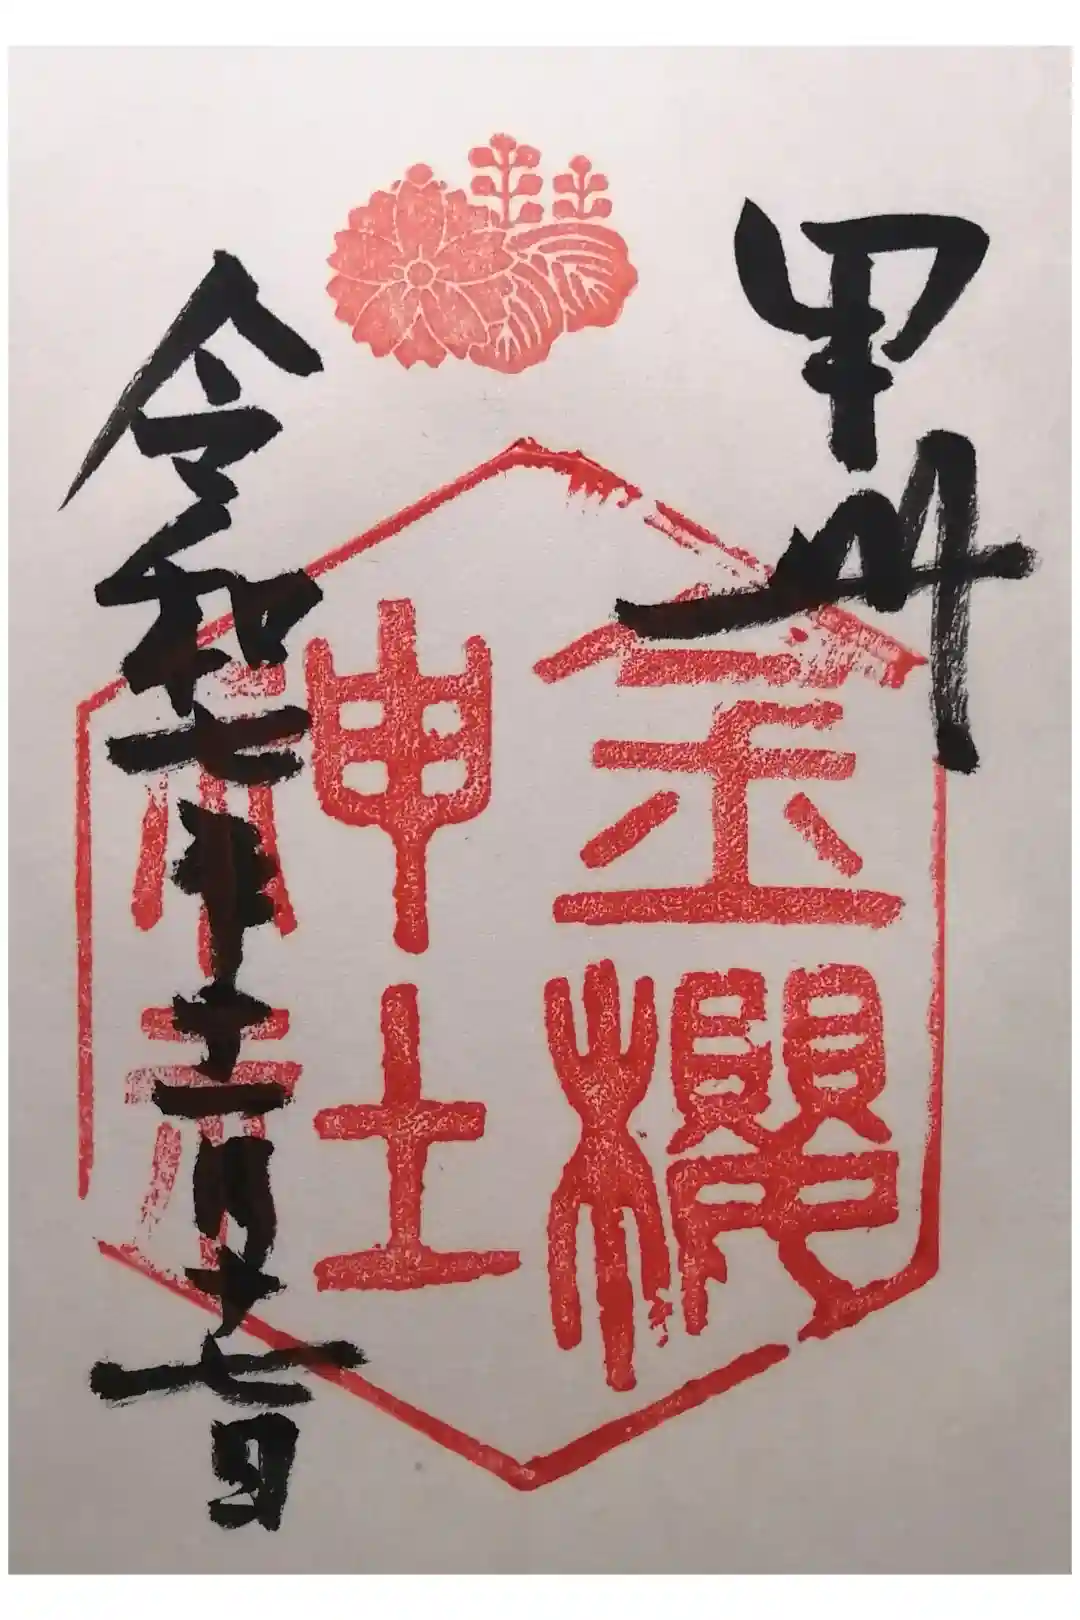 甲州
金櫻
神社
令和七年十二月十七日